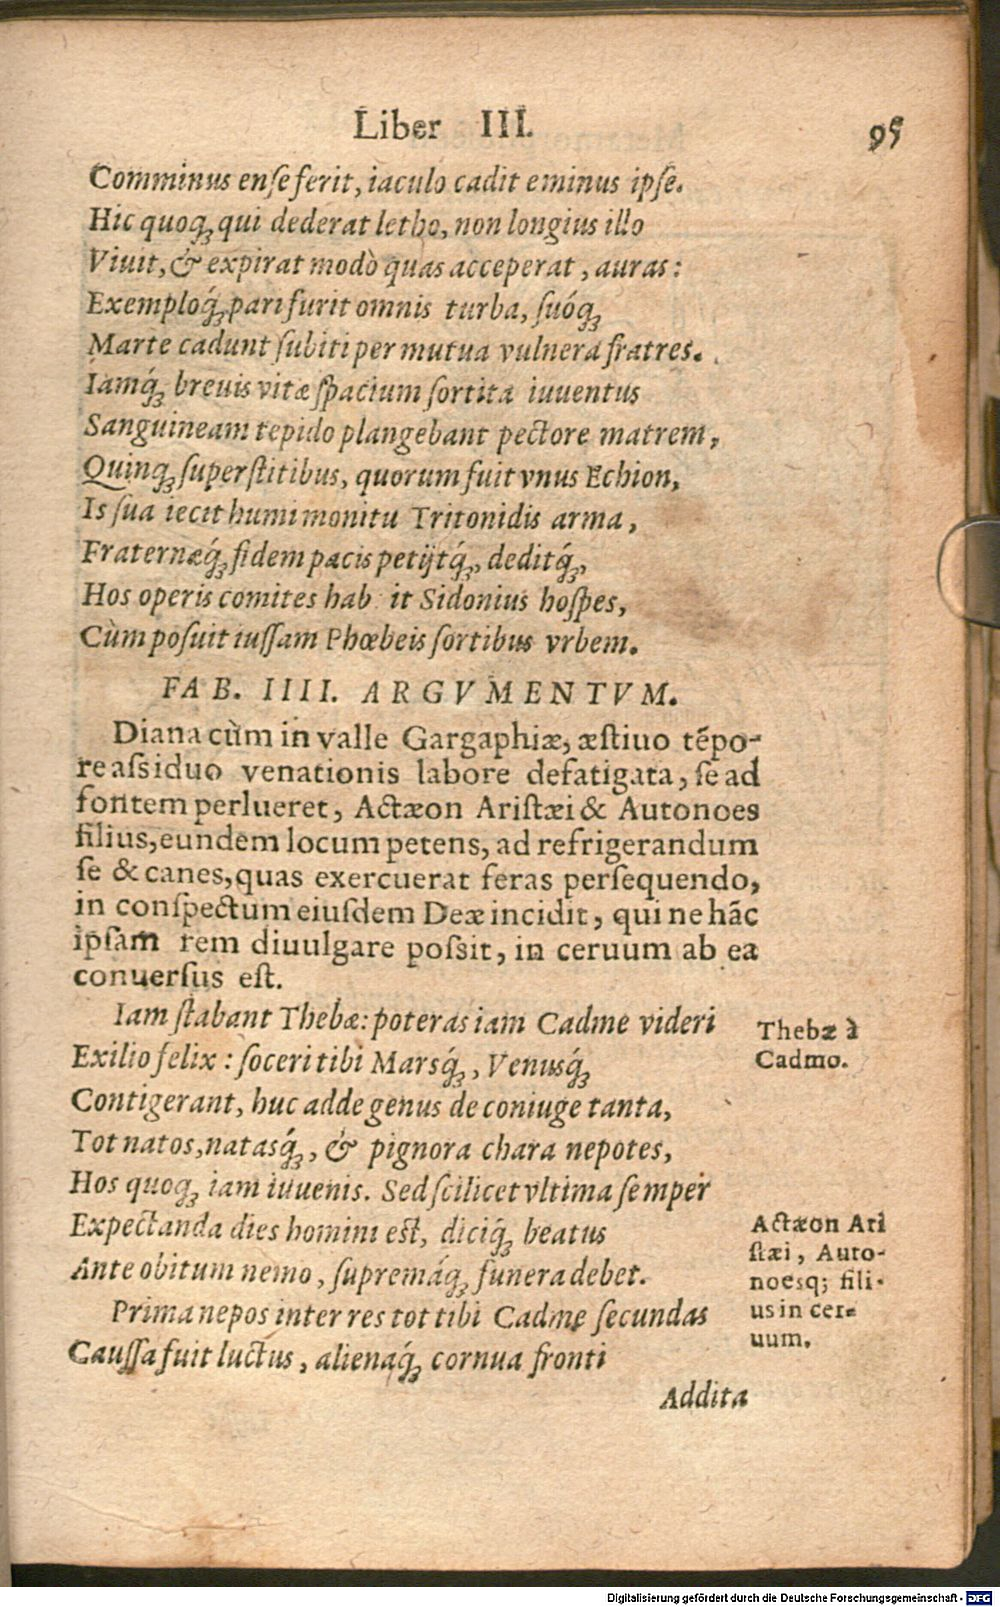 Liber III. 95
Comminus ense ferit, iaculo cadit eminus ipse.
Hic quoq; qui dederat letho, non longius illo
Viuit, & expirat modò quas acceperat, auras:
Exemploq́; pari furit omnis turba, suóq;
Marte cadunt subiti per mutua vulnera fratres.
Iamq́; breuis vitæ spacium sortita iuuentus
Sanguineam tepido plangebant pectore matrem,
Quinq; superstitibus, quorum fuit vnus Echion,
Is sua iecit humi monitu Tritonidis arma,
Fraternæq́; fidem pacis petijtq́;, deditq́;,
Hos operis comites hab it Sidonius hospes,
Cùm posuit iussam Phœbeis sortibus vrbem.
FAB. IIII. ARGVMENTVM.
Diana cùm in valle Gargaphiæ, æstiuo tẽpo-
re assiduo venationis labore defatigata, se ad
fontem perlueret, Actæon Aristæi & Autonoes
filius, eundem locum petens, ad refrigerandum
se & canes, quas exercuerat feras persequendo,
in conspectum eiusdem Deæ incidit, qui ne hãc
ipsam rem diuulgare possit, in ceruum ab ea
conuersus est.
Iam stabant Thebæ: poteras iam Cadme videri
Exilio felix: soceri tibi Marsq́;, Venusq́;
Contigerant, huc adde genus de coniuge tanta,
Tot natos, natasq́;, & pignora chara nepotes,
Hos quoq; iam iuuenis. Sed scilicet vltima semper
Expectanda dies homini est, diciq́; beatus
Ante obitum nemo, supremáq; funera debet.
Prima nepos inter res tot tibi Cadme secundas
Caussa fuit luctus, alienaq́; cornua fronti
Addita
Thebæ à
Cadmo.
Actæon Ari
stæi, Auto-
noesq; fili-
us in cer-
uum.
Digitalisierung gefördert durch die Deutsche Forschungsgemeinschaft - DFG